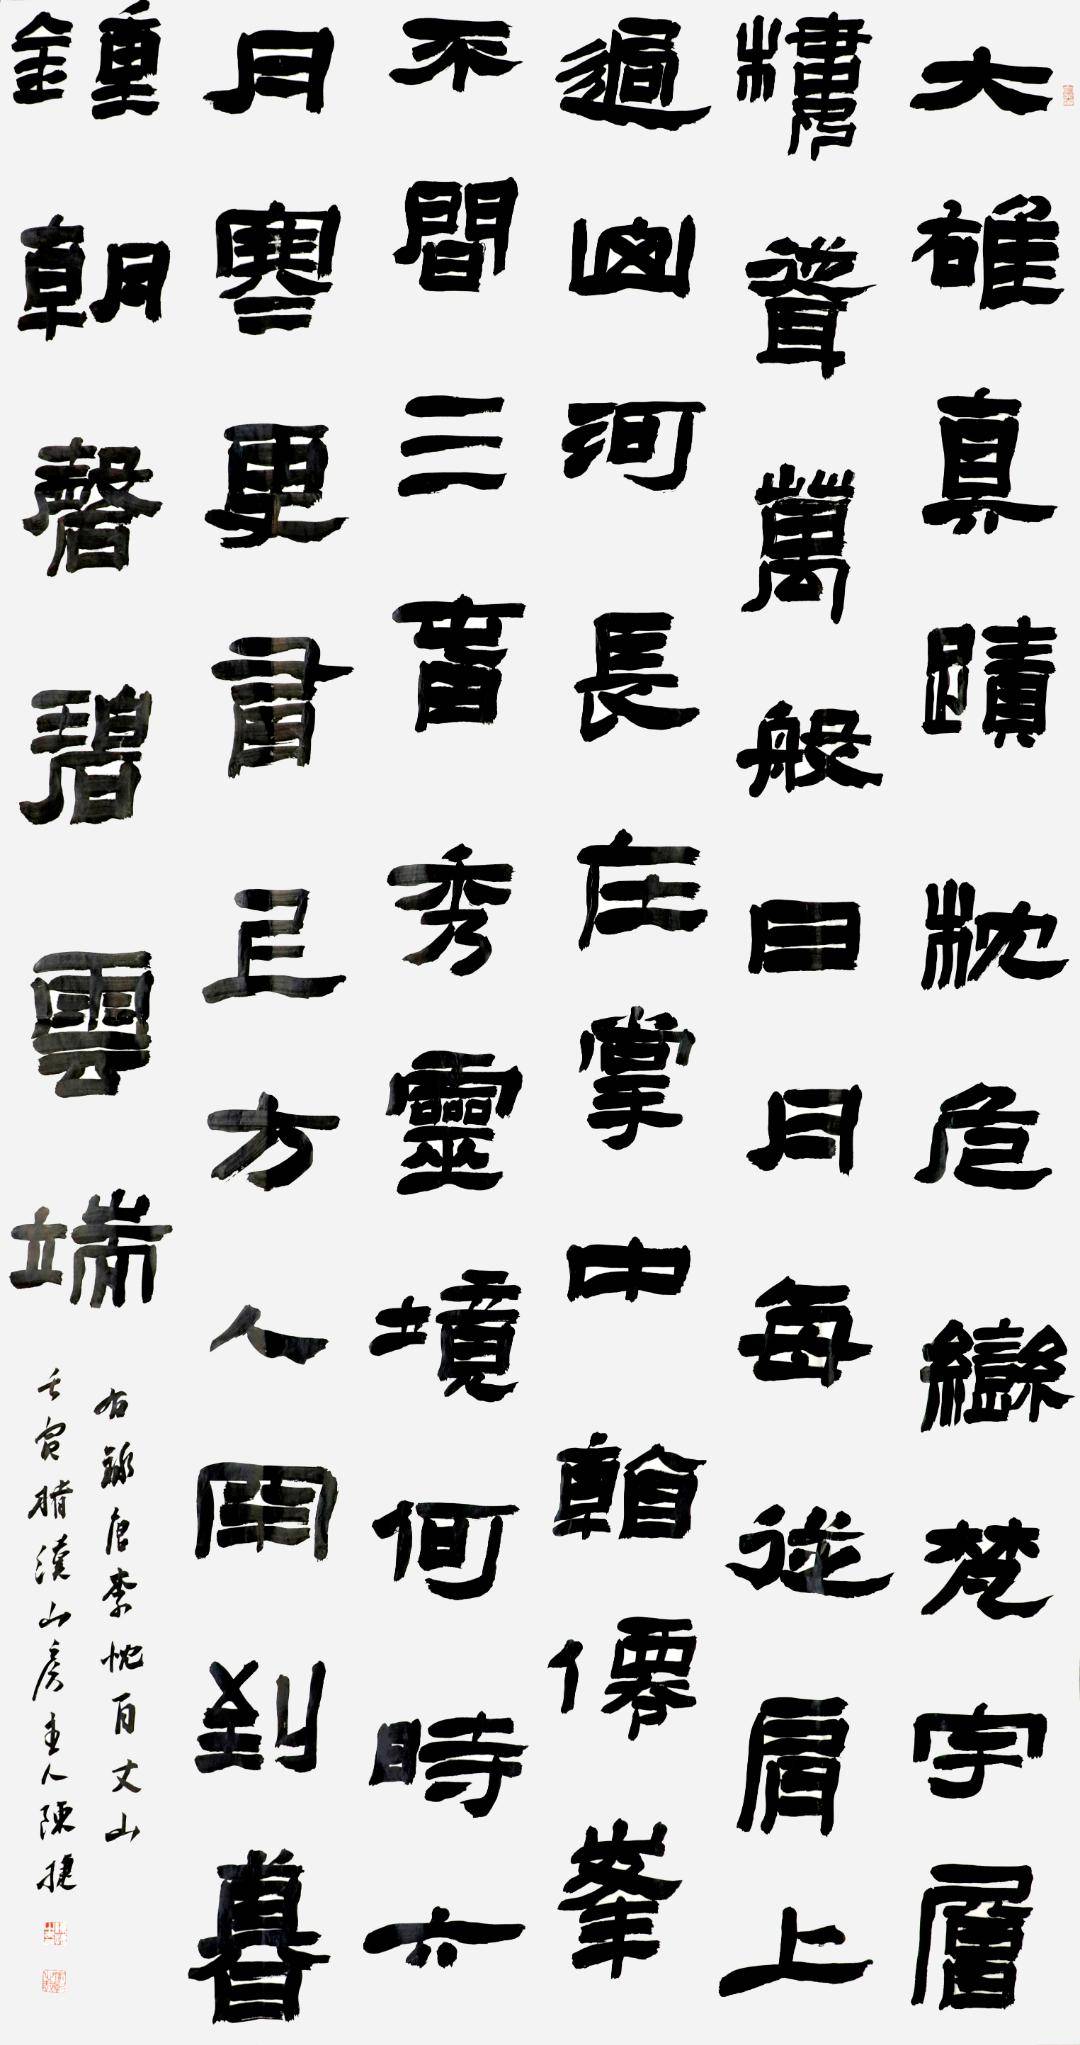 大雄真蹟枕危巒梵宇層
樓聳萬般日月每從肩上
過山河長在掌中看僊峯
不間三春秀靈境何時六
月寒更有上方人罕到暮
鍾朝磬碧雲端
右錄唐李忱百丈山
壬寅漢山房主人陳捷